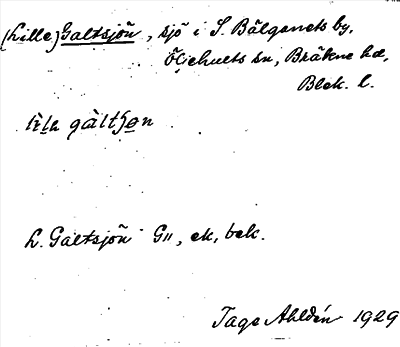 (Lille) Galtsjön, sjö i S. Bälganets by,
Öljehults sn, Bräkne hd,
Blek. l.
lìla gàltʃøn
L. Galtsjön GII, ek, bek.
Tage Ahldén 1929